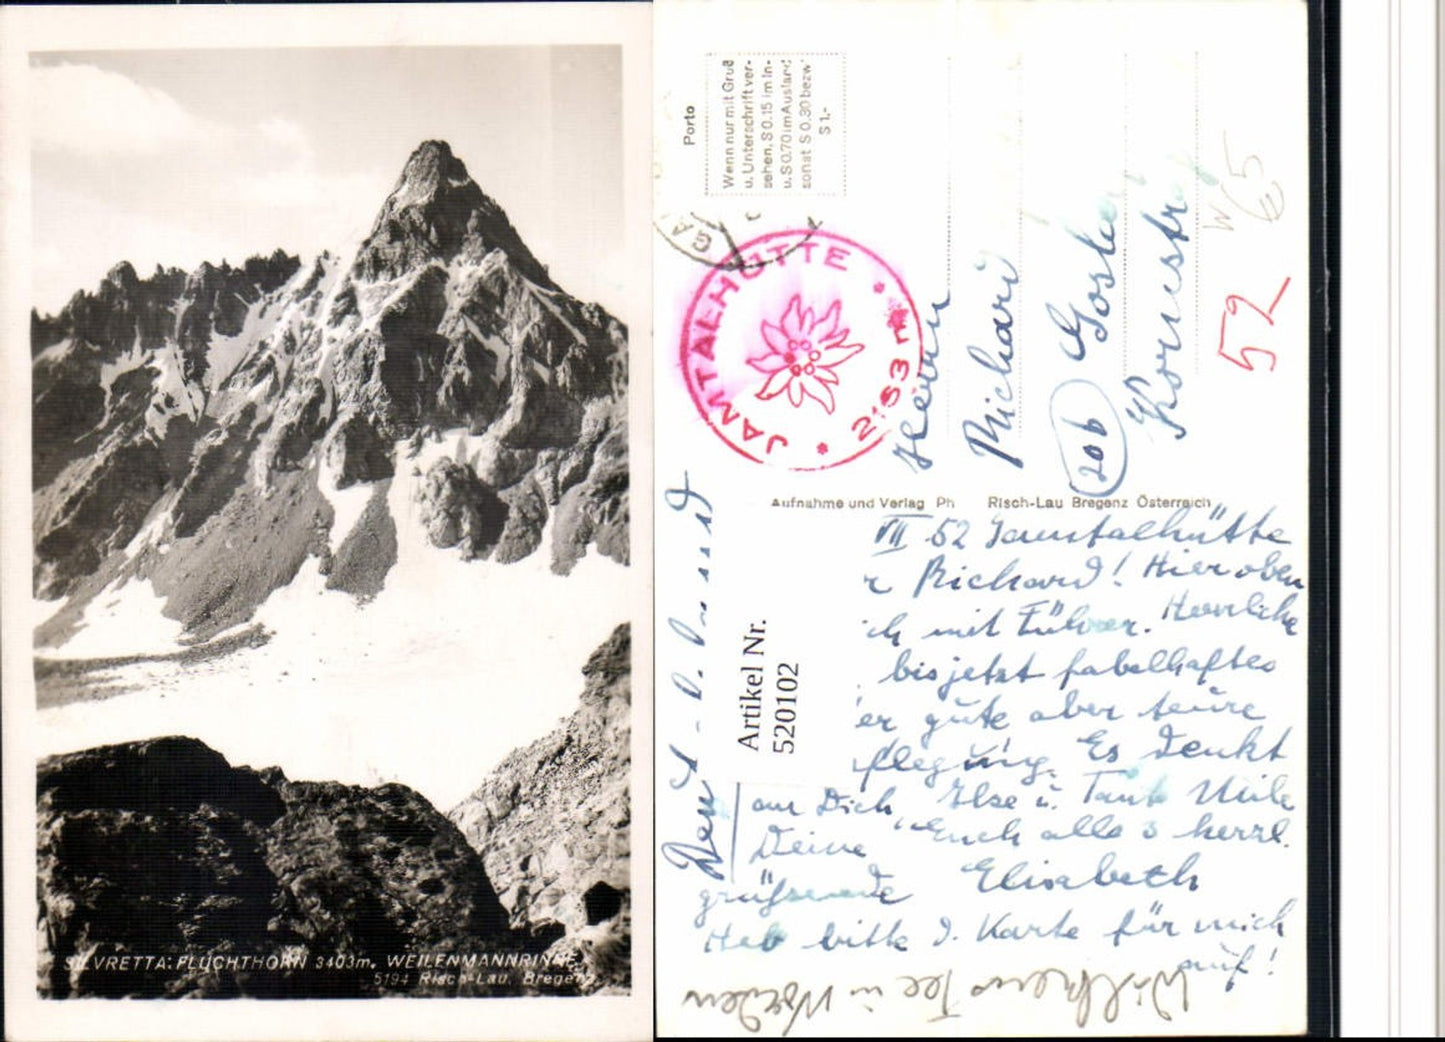 SILVRETTA: FLUCHTHORN 3403m. WEILENMANNRINNE
5194 Risch-Lau, Bregenz
Porto
Wenn nur mit Gruß
u. Unterschrift ver-
sehen. S 0.15 im In-
u. S 0.70 im Ausland
sonst S 0.30 bezw.
S 1.-
JAMTALHÜTTE
* 2163 m *
Herrn
Richard
20b Goslar
Kornustr
W 65
52
Aufnahme und Verlag Ph Risch-Lau Bregenz Österreich
Artikel Nr.
520102
VII.52 Jamtalhütte
r Richard! Hier oben
ich mit Führer. Herrliche
bis jetzt fabelhaftes
er gute aber teure
pflegung. Es denkt
an Dich, Ilse u. Tante Mile
Deine Euch alle 3 herzl.
grüßende Elisabeth
Heb bitte d. Karte für mich
auf!